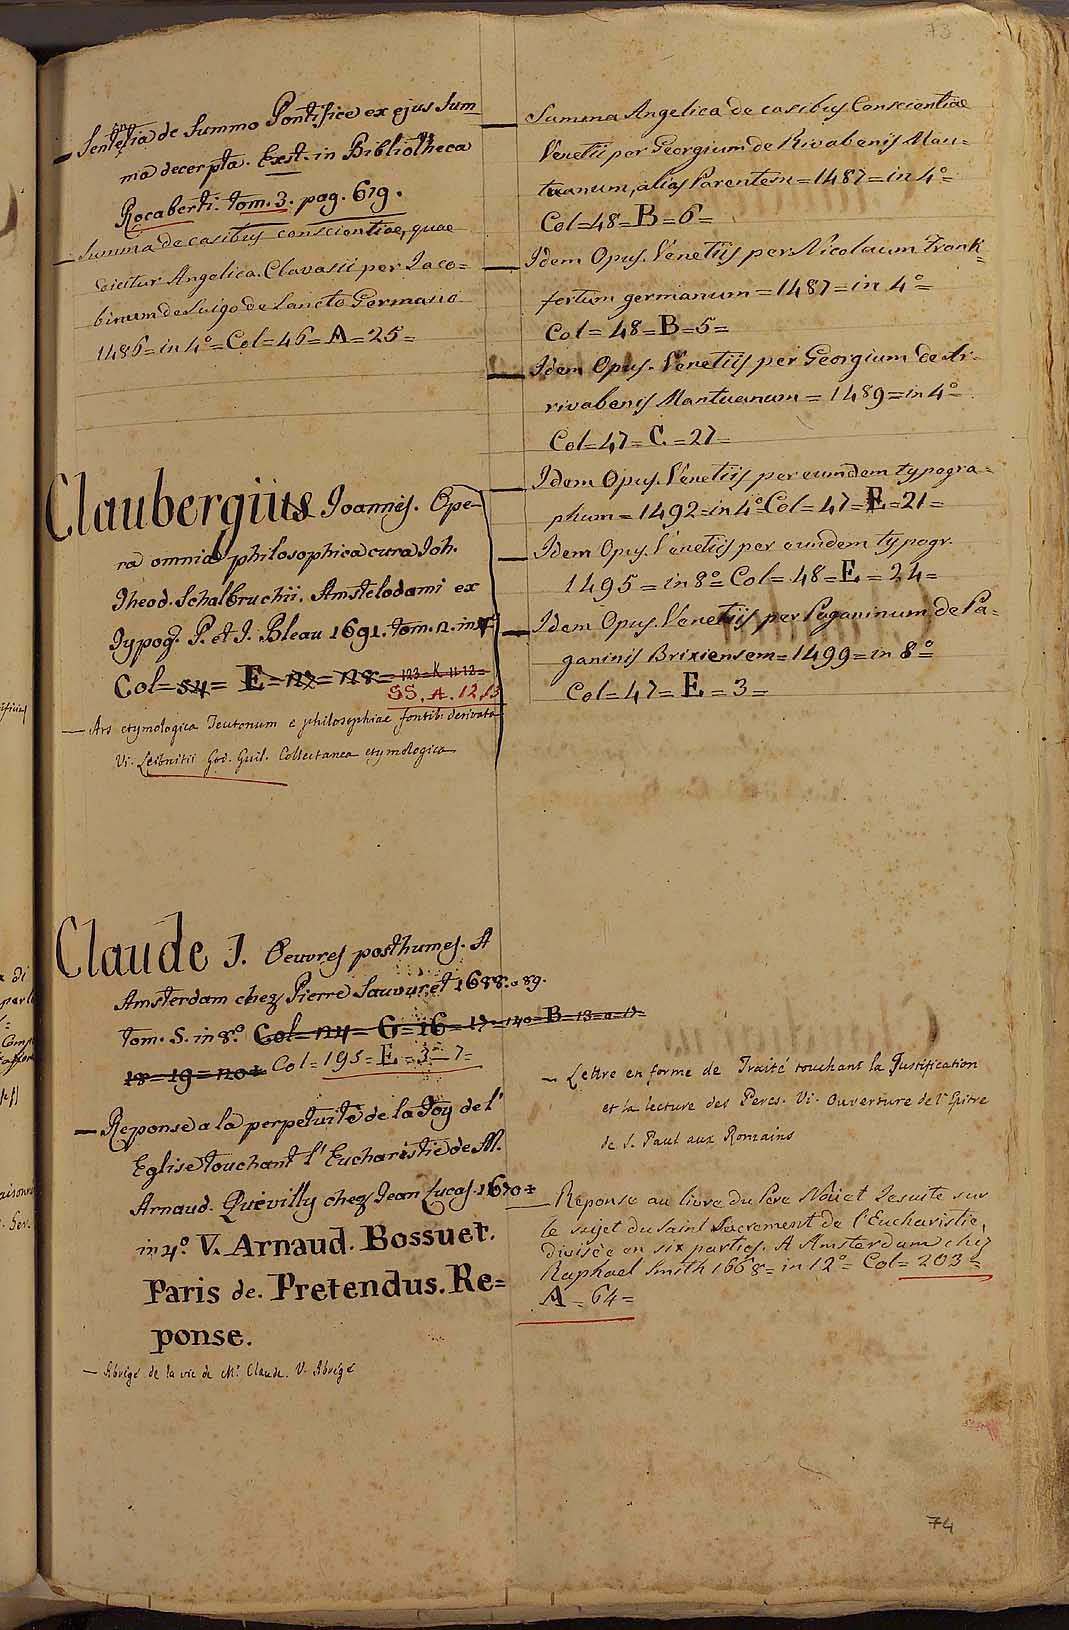 73
— Sententia de Summo Pontifice ex ejus Sum=
ma decerpta. Exst. in Bibliotheca
Rocaberti. tom. 3. pag. 679.
— Summa de casibus conscientiae, quae
dicitur Angelica. Clavasii per Jaco=
binum de Suigo de Sancto Germano
1486=in 4°=Col=46=A=25=
Claubergius Joannis. Ope=
ra omnia philosophica cura Joh.
Theod. Schalbruchii. Amstelodami ex
Typog. P. et J. Bleau 1691. tom. 2. in 4°
Col=54= E=127=128= 123=K 11 12=
SS. A. 12, 13
— Ars etymologica Teutonum e philosophiae fontib. derivata
Vi. Leibnitii God. Guil. Collectanea etymologica
Claude J. Oeuvres posthumes. A
Amsterdam chez Pierre Sauvuret 1688. a 89.
tom. 5. in 8.° Col=124=G=16=17=140=B=13=a=17=
18=19=20= Col=195=E=3–7=
— Reponse a la perpetuité de la foy de l'
Eglise touchant l'Eucharistie de M.
Arnaud. Quevilly chez Jean Lucas. 1670=
in 4.° V. Arnaud. Bossuet.
Paris de. Pretendus. Re=
ponse.
— Abregé de la vie de Mr Claude. V. Abregé
— Summa Angelica de casibus Conscientiae
Venetii per Georgium de Rivabenis Man=
tuanum, alias Parentem=1487=in 4°=
Col=48=B=6=
— Idem Opus. Venetiis per Nicolaum Frank=
fortum germanum=1487=in 4°=
Col=48=B=5=
— Idem Opus. Venetiis per Georgium de Ar=
rivabenis Mantuanum=1489=in 4°=
Col=47=C=27=
— Idem Opus. Venetiis per eumdem typogra=
phum=1492=in 4°=Col=47=E=21=
— Idem Opus. Venetiis per eundem typogr.
1495=in 8°=Col=48=E=24=
— Idem Opus. Venetiis per Paganinum de Pa=
ganinis Brixiensem=1499=in 8°=
Col=47=E=3=
— Lettre en forme de Traité touchant la Justification
et la lecture des Peres. Vi. Ouverture de l'Epitre
de S. Paul aux Romains
— Reponse au livre du Pere Noüet Jesuite sur
le sujet du Saint Sacrement de l'Eucharistie,
divisée en six parties. A Amsterdam chez
Raphael Smith 1668=in 12°=Col=203=
A=64=
74